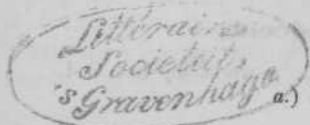 Littéraire
Societeit,
's Gravenhage
a.)